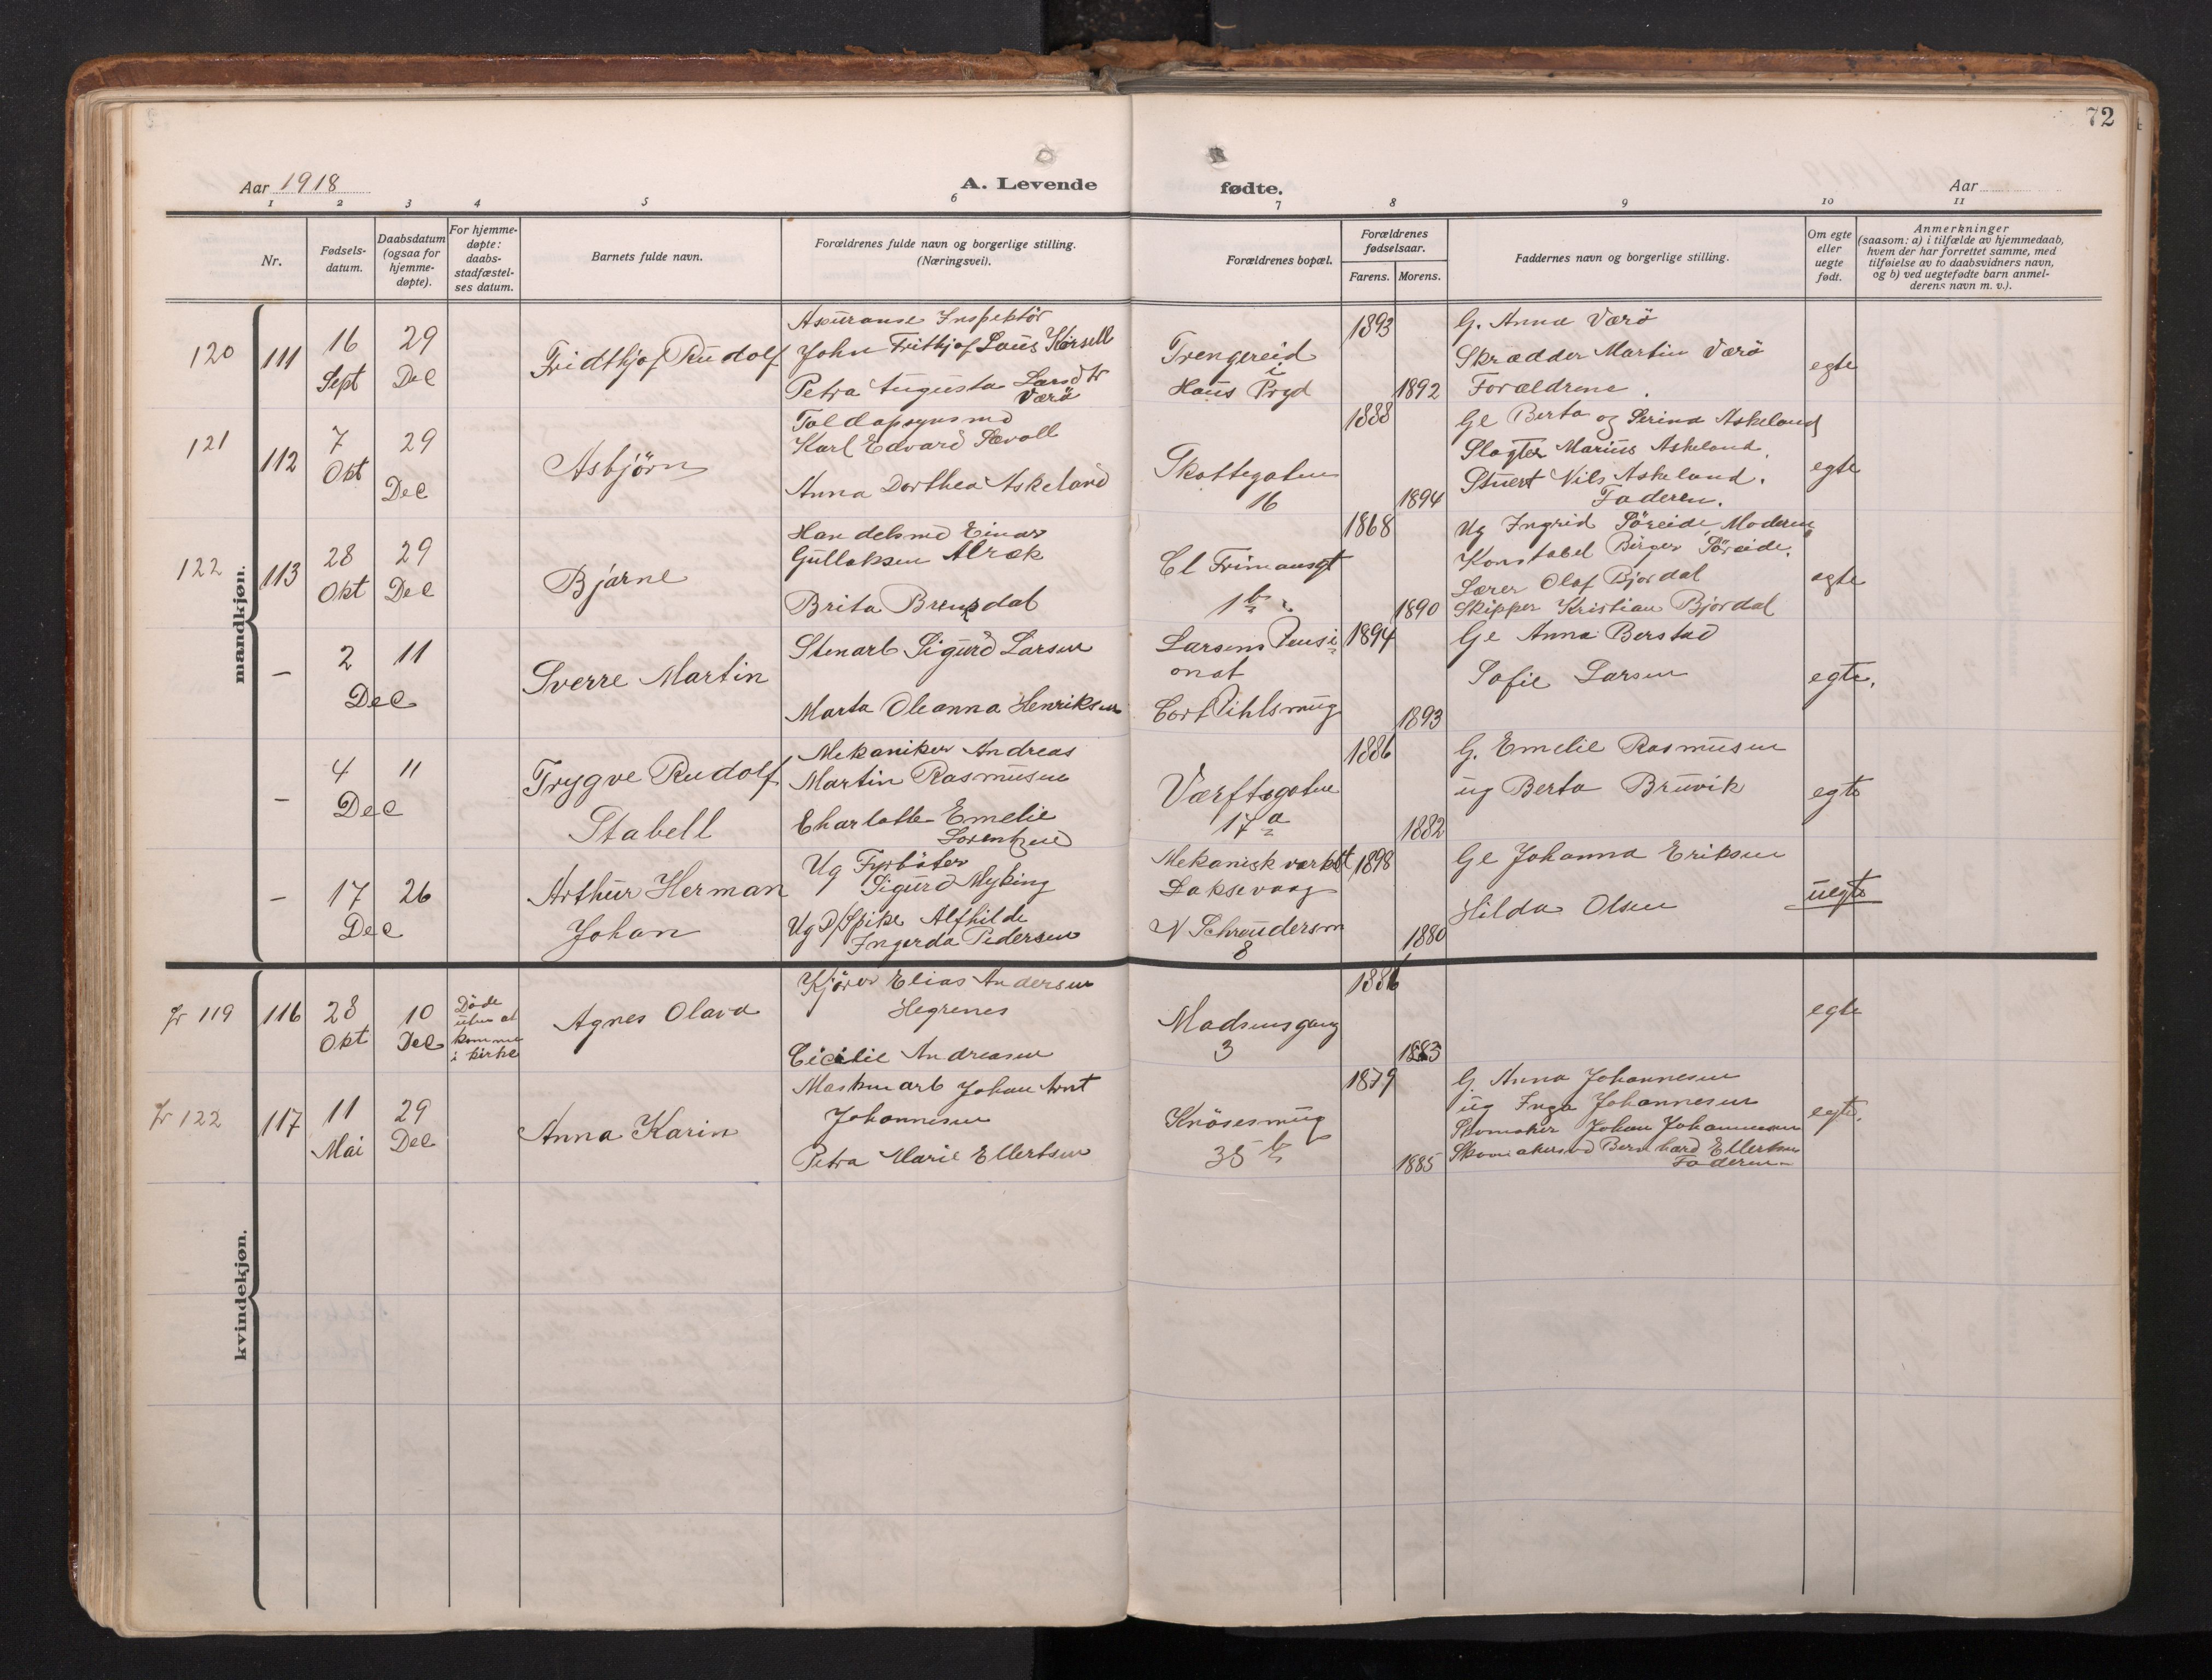 72
Aar 1918
A. Levende
fødte.
Aar
1 2 3 4 5 6 7 8 9 10 11
Nr.
Fødsels-
datum.
Daabsdatum
(ogsaa for
hjemme-
døpte).
For hjemme-
døpte:
daabs-
stadfæstel-
ses datum.
Barnets fulde navn.
Forældrenes fulde navn og borgerlige stilling.
(Næringsvei).
Forældrenes bopæl.
Forældrenes
fødselsaar.
Farens. Morens.
Faddernes navn og borgerlige stilling.
Om egte
eller
uegte
født.
Anmerkninger
(saasom: a) i tilfælde av hjemmedaab,
hvem der har forrettet samme, med
tilføielse av to daabsvidners navn,
og b) ved uegtefødte barn anmel-
derens navn m. v.).
mandkjøn.
120 111 16 29
Sept Dec
Fridthjof Rudolf
Assuranse Inspektör
John Frithjof Laus Korsell
Petra Augusta Larsdtr
Værö
Trengereid
i
Haus Prgd
1893
1892
G. Anna Værö
Skrædder Martin Værö
Forældrene.
egte
121 112 7 29
Okt Dec
Asbjörn
Toldopsynsmd
Karl Edvard Sævoll
Anna Dorthea Askeland
Skottegaten
16
1888
1894
Ge Berta og Serina Askeland
Slagter Marius Askeland.
Stuert Nils Askeland.
Faderen.
egte
122 113 28 29
Okt Dec
Bjarne
Handelsmd Einar
Gullaksen Alræk
Brita Brensdal
Cl Frimansgt
1 b
1868
1890
Ug Ingrid Söreide, Moderen
Konstabel Birger Söreide.
Lærer Olaf Bjordal
Skipper Kristian Bjordal
egte
- 2 11
Dec
Sverre Martin
Stenarb Sigurd Larsen
Marta Oleanna Henriksen
Larsens Pensi
onat
Cort Pihlsmug
1894
1893
Ge Anna Berstad
Sofie Larsen
egte.
- 4 11
Dec
Trygve Rudolf
Stabell
Mekaniker Andreas
Martin Rasmusen
Charlotte Emelie
Lorentzen
Værftsgaten
17 a
1886
1882
G. Emelie Rasmusen
ug Berta Bruvik
egte
- 17 26
Dec
Arthur Herman
Johan
Ug Fyrböter
Sigurd Myking
Ug P/Spike Alfhilde
Ingerda Pedersen
Mekanisk værkst
Laksevaag
N Schreudersm
8
1898
1880
Ge Johanna Eriksen
Hilda Olsen
uegte
kvindekjøn.
Jr 119 116 28 10
Okt Dec
Döde
uten at
komme
i kirke
Agnes Olava
Kjörer Elias Andersen
Hegrenes
Cicilie Andreasen
Madsensgang
3
1886
1883
egte
Jr 122 117 11 29
Mai Dec
Anna Karin
Maskinarb Johan Arnt
Johannesen
Petra Marie Ellertsen
Knösesmug
35 b
1879
1885
G. Anna Johannesen
ug Inga Johannesen
Skomaker Johan Johannesen
Skomakersvd Bernhard Ellertsen
Faderen
egte.